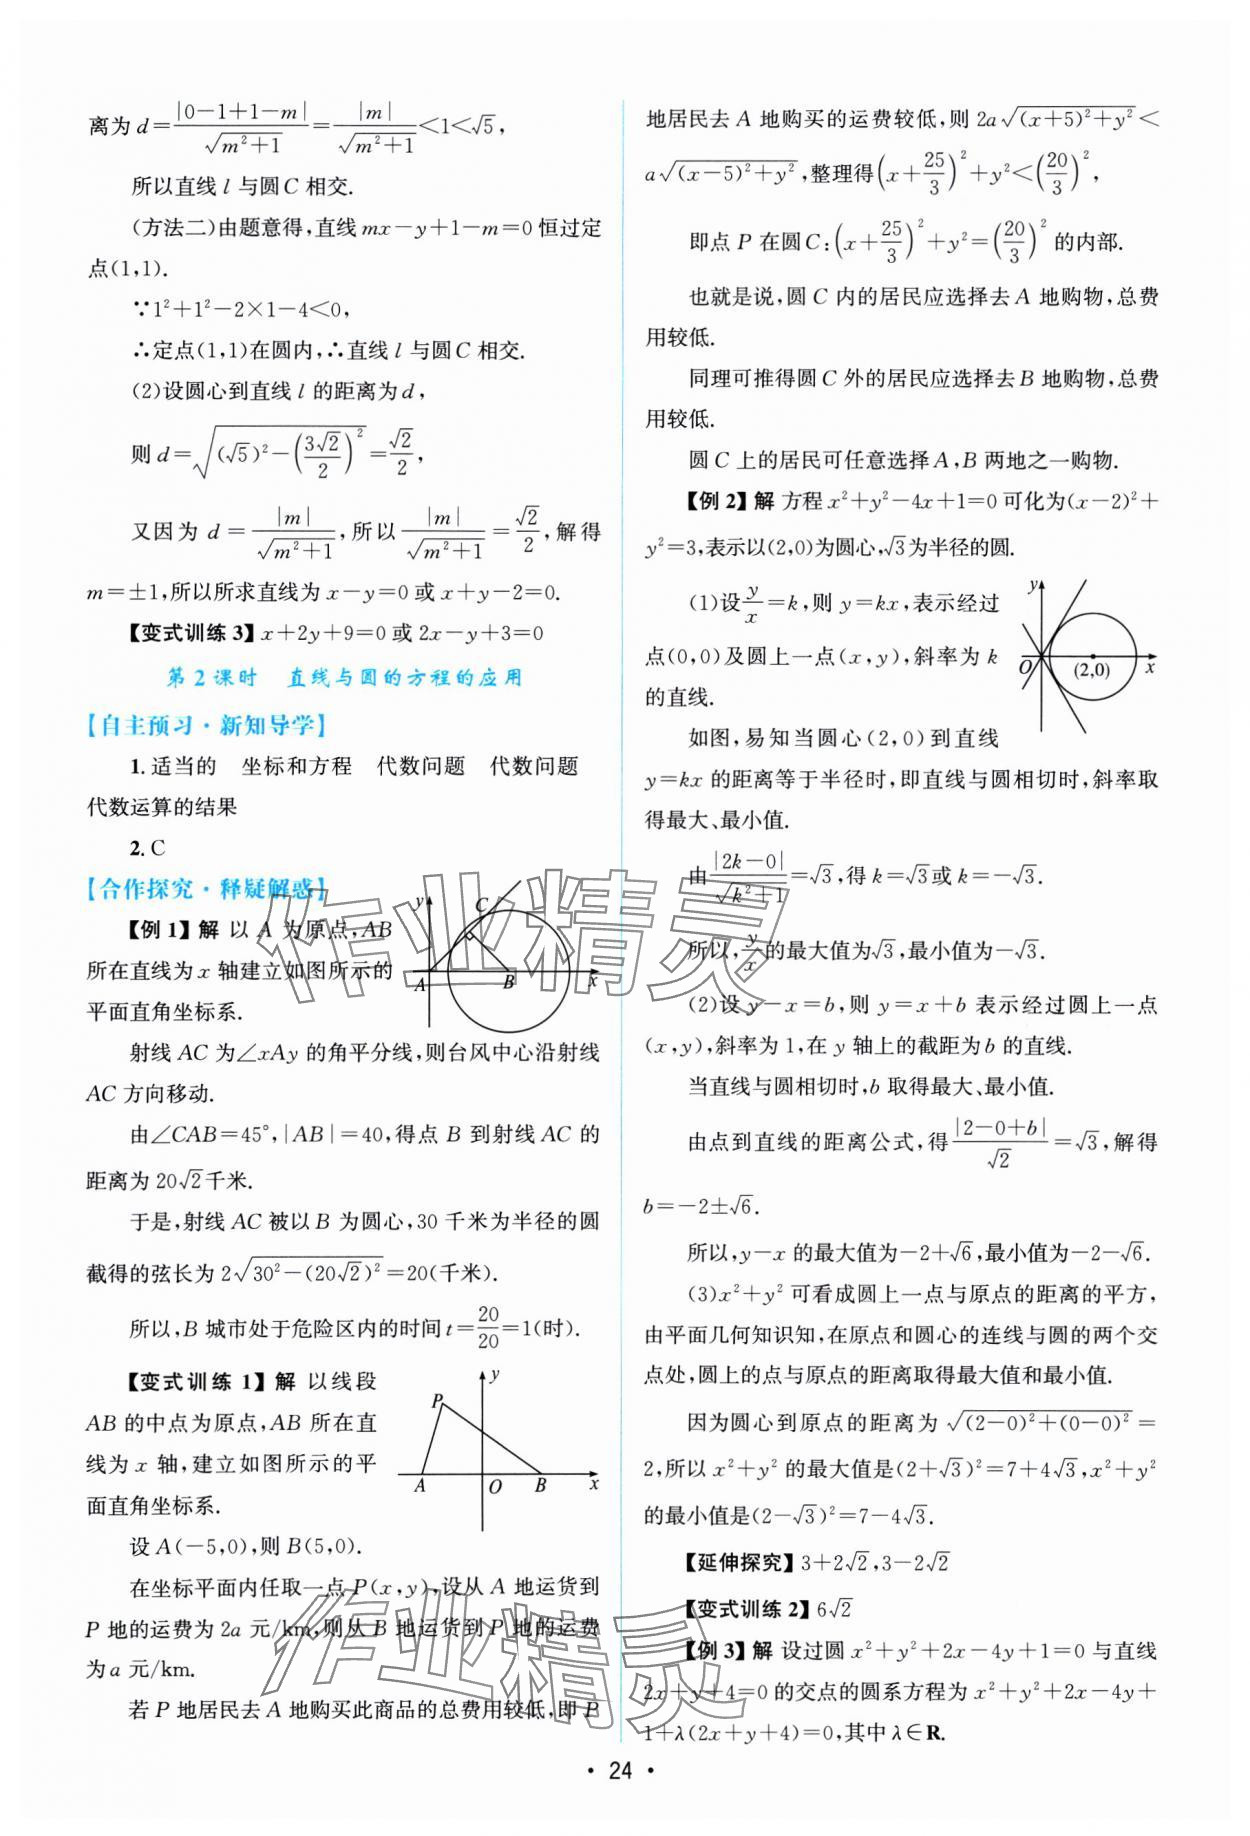 离为 d=|0-1+1-m|/√(m²+1)=|m|/√(m²+1)<1<√5,
所以直线 l 与圆 C 相交.
(方法二)由题意得,直线 mx-y+1-m=0 恒过定
点(1,1).
∵1²+1²-2×1-4<0,
∴定点(1,1)在圆内,∴直线 l 与圆 C 相交.
(2)设圆心到直线 l 的距离为 d,
则 d=√((√5)²-(3√2/2)²)=√2/2,
又因为 d=|m|/√(m²+1),所以|m|/√(m²+1)=√2/2,解得
m=±1,所以所求直线为 x-y=0 或 x+y-2=0.
【变式训练 3】x+2y+9=0 或 2x-y+3=0
第 2 课时 直线与圆的方程的应用
【自主预习·新知导学】
1.适当的 坐标和方程 代数问题 代数问题
代数运算的结果
2. C
【合作探究·释疑解惑】
【例 1】解 以 A 为原点,AB
所在直线为 x 轴建立如图所示的
平面直角坐标系.
y
C
A
B
x
射线 AC 为∠xAy 的角平分线,则台风中心沿射线
AC 方向移动.
由∠CAB=45°,|AB|=40,得点 B 到射线 AC 的
距离为 20√2千米.
于是,射线 AC 被以 B 为圆心,30 千米为半径的圆
截得的弦长为 2√(30²-(20√2)²)=20(千米).
所以,B 城市处于危险区内的时间 t=20/20=1(时).
【变式训练 1】解 以线段
AB 的中点为原点,AB 所在直
线为 x 轴,建立如图所示的平
面直角坐标系.
y
P
A
O
B
x
设 A(-5,0),则 B(5,0).
在坐标平面内任取一点 P(x,y),设从 A 地运货到
P 地的运费为 2a 元/km,则从 B 地运货到 P 地的运费
为 a 元/km.
若 P 地居民去 A 地购买此商品的总费用较低,即 P
地居民去 A 地购买的运费较低,则 2a√((x+5)²+y²)<
a√((x-5)²+y²),整理得(x+25/3)²+y²<(20/3)²,
即点 P 在圆 C:(x+25/3)²+y²=(20/3)² 的内部.
也就是说,圆 C 内的居民应选择去 A 地购物,总费
用较低.
同理可推得圆 C 外的居民应选择去 B 地购物,总费
用较低.
圆 C 上的居民可任意选择 A,B 两地之一购物.
【例 2】解 方程 x²+y²-4x+1=0 可化为(x-2)²+
y²=3,表示以(2,0)为圆心,√3为半径的圆.
(1)设y/x=k,则 y=kx,表示经过
点(0,0)及圆上一点(x,y),斜率为 k
的直线.
y
O
(2,0)
x
如图,易知当圆心(2,0)到直线
y=kx 的距离等于半径时,即直线与圆相切时,斜率取
得最大、最小值.
由|2k-0|/√(k²+1)=√3,得 k=√3或 k=-√3.
所以,y/x的最大值为√3,最小值为-√3.
(2)设 y-x=b,则 y=x+b 表示经过圆上一点
(x,y),斜率为 1,在 y 轴上的截距为 b 的直线.
当直线与圆相切时,b 取得最大、最小值.
由点到直线的距离公式,得|2-0+b|/√2=√3,解得
b=-2±√6.
所以,y-x 的最大值为-2+√6,最小值为-2-√6.
(3)x²+y² 可看成圆上一点与原点的距离的平方,
由平面几何知识知,在原点和圆心的连线与圆的两个交
点处,圆上的点与原点的距离取得最大值和最小值.
因为圆心到原点的距离为 √((2-0)²+(0-0)²)=
2,所以 x²+y² 的最大值是(2+√3)²=7+4√3,x²+y²
的最小值是(2-√3)²=7-4√3.
【延伸探究】3+2√2,3-2√2
【变式训练 2】6√2
【例 3】解 设过圆 x²+y²+2x-4y+1=0 与直线
2x+y+4=0 的交点的圆系方程为 x²+y²+2x-4y+
1+λ(2x+y+4)=0,其中 λ∈R.
作业精灵
作业精灵
· 24 ·